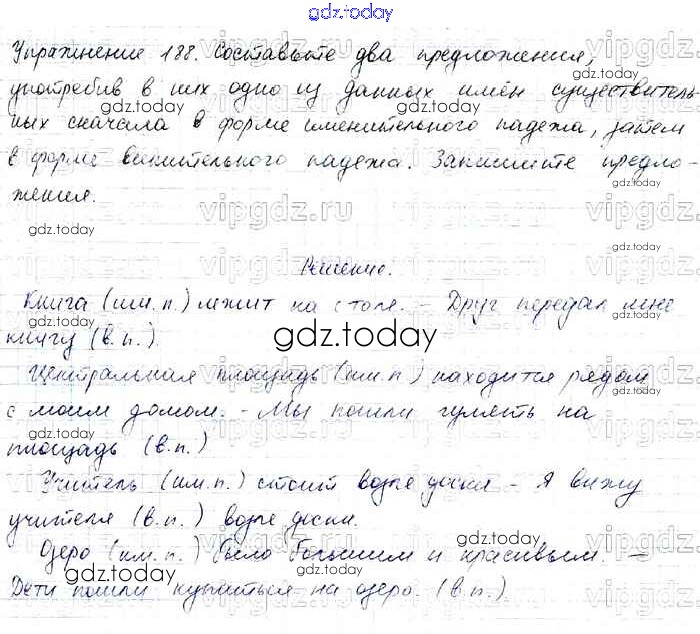 gdz.today
Упражнение 188. Составьте два предложения,
употребив в них одно из данных имён существитель-
ных сначала в форме именительного падежа, затем
в форме винительного падежа. Запишите предло-
жения.
Решение.
Книга (им.п.) лежит на столе. – Друг передал мне
книгу (в.п.).
Центральная площадь (им.п) находится рядом
с моим домом. - Мы пошли гулять на
площадь (в.п.)
Учитель (им.п.) стоит возле доски - Я вижу
учителя (в.п.) возле доски.
Озеро (им.п.) было большим и красивым. –
Дети пошли купаться на озеро. (в.п.)